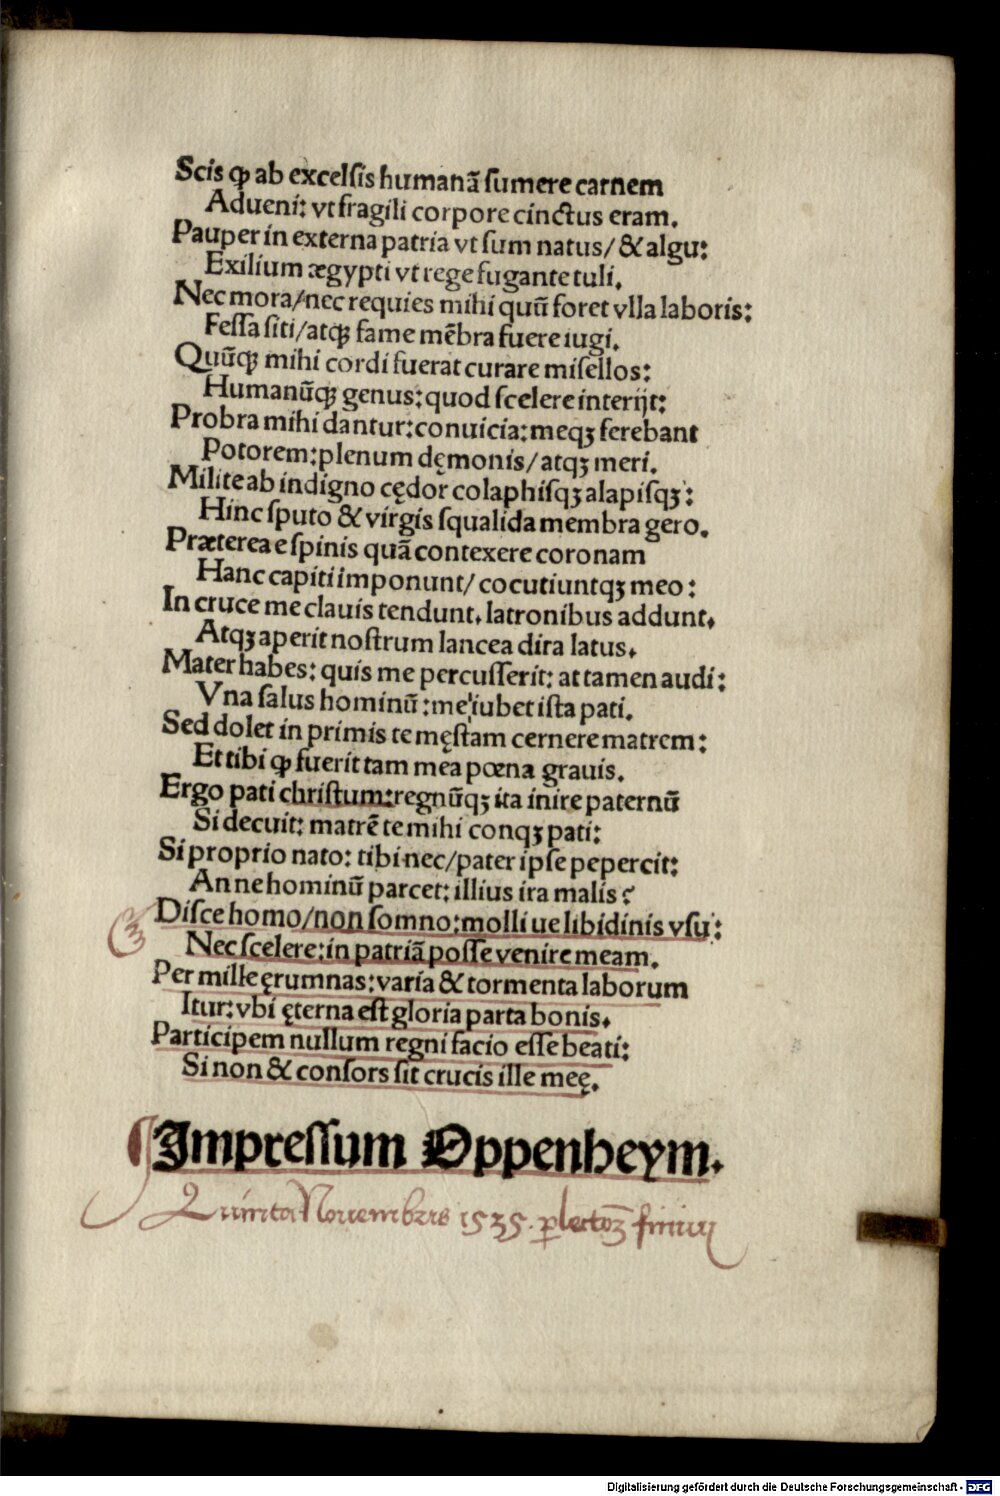 Scis ꝙ ab excelſis humanā ſumere carnem
Adueni: vt fragili corpore cinctus eram.
Pauper in externa patria vt ſum natus/ & algu:
Exilium ægypti vt rege fugante tuli.
Nec mora/nec requies mihi quū foret vlla laboris:
Feſſa ſiti/atqꝫ fame mēbra fuere iugi.
Quūqꝫ mihi cordi fuerat curare miſellos:
Humanūqꝫ genus: quod ſcelere interijt:
Probra mihi dantur: conuicia: meqꝫ ferebant
Potorem: plenum dęmonis/ atqꝫ meri.
Milite ab indigno cędor colaphiſqꝫ alapiſqꝫ:
Hinc ſputo & virgis ſqualida membra gero.
Præterea e ſpinis quā contexere coronam
Hanc capiti imponunt/ cōcutiuntqꝫ meo:
In cruce me clauis tendunt. latronibus addunt.
Atqꝫ aperit noſtrum lancea dira latus.
Mater habes: quis me percuſſerit: at tamen audi:
Vna ſalus hominū: me iubet iſta pati.
Sed dolet in primis te męſtam cernere matrem:
Et tibi ꝙ fuerit tam mea pœna grauis.
Ergo pati chriſtum: regnūqꝫ ita inire paternū
Si decuit: matrē te mihi conqꝫ pati:
Si proprio nato: tibi nec/ pater ipſe pepercit:
An ne hominū parcet: illius ira malis?
Diſce homo/non ſomno: molli ue libidinis vſu:
Nec ſcelere: in patriā poſſe venire meam.
Per mille ęrumnas: varia & tormenta laborum
Itur: vbi ęterna eſt gloria parta bonis.
Participem nullum regni facio eſſe beati:
Si non & conſors ſit crucis ille meę.
¶Impreſſum Oppenheym.
Quinta Nouembris 1535. plectoꝫ finiui
Digitalisierung gefördert durch die Deutsche Forschungsgemeinschaft - DFG